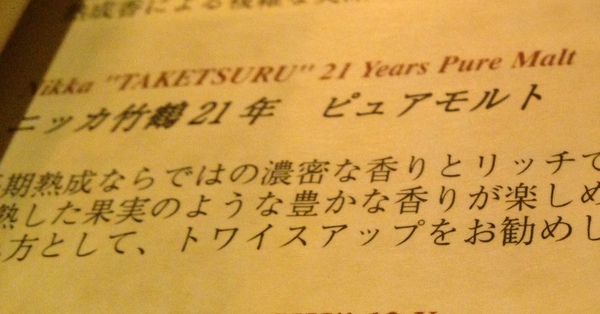 熟成香による複雑な
Nikka "TAKETSURU" 21 Years Pure Malt
ニッカ竹鶴 21 年 ピュアモルト
期熟成ならではの濃密な香りとリッチで
熟した果実のような豊かな香りが楽しめ
方として、トワイスアップをお勧めし